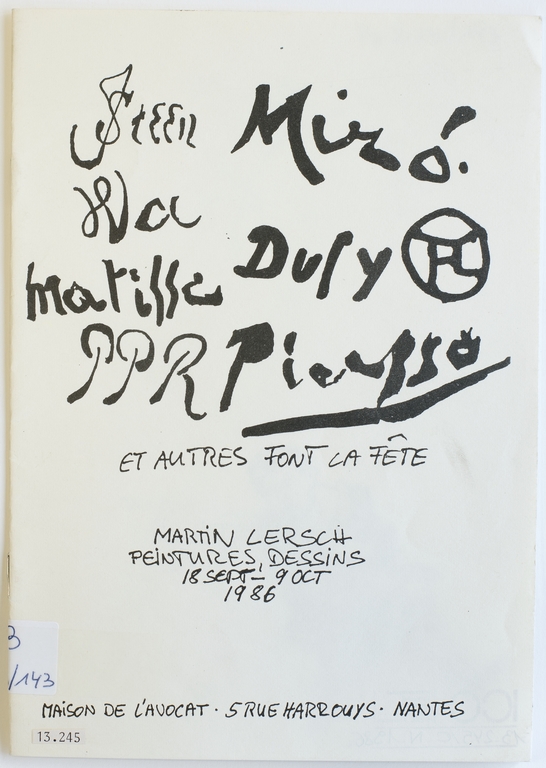 Steen Miró.
Wa
Matisse Dufy
PPR Picasso
ET AUTRES FONT LA FÊTE
MARTIN LERSCH
PEINTURES, DESSINS
18 SEPT - 9 OCT
1986
3
/143
MAISON DE L'AVOCAT · 5 RUE HARROUYS · NANTES
13.245